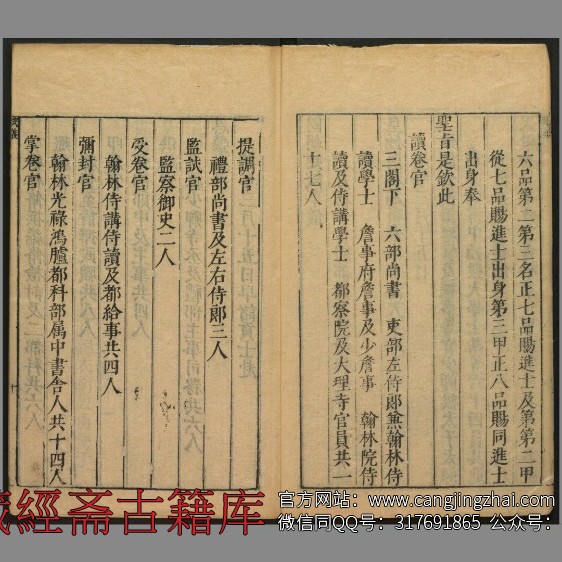 六品第二第三名正七品賜進士及第第二甲
從七品賜進士出身第三甲正八品賜同進士
出身奉
聖旨是欽此
讀卷官
三閣下　六部尚書　吏部左侍郎兼翰林侍
讀學士　詹事府詹事及少詹事　翰林院侍
讀及侍講學士　都察院及大理寺官員共一
十七人
提調官
禮部尚書及左右侍郎三人
監試官
監察御史二人
受卷官
翰林侍講侍讀及都給事共四人
彌封官
翰林光祿鴻臚都科部属中書舎人共十四人
掌卷官
藏經斋古籍库
官方网站：www.cangjingzhai.com
微信同QQ号：317691865 公众号：